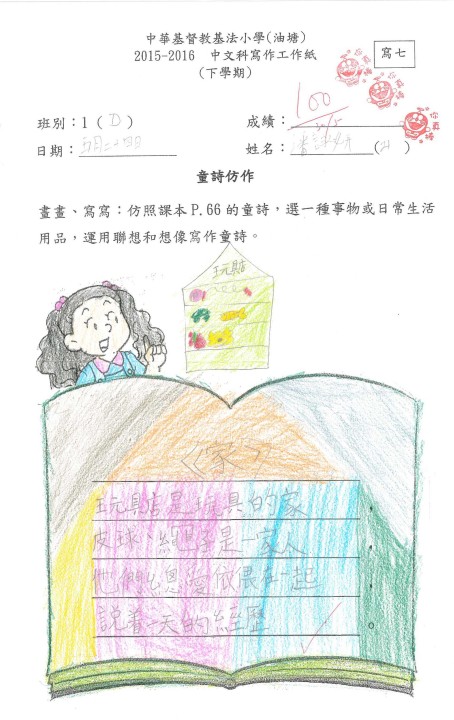 中華基督教基法小學(油塘)
2015-2016 中文科寫作工作紙
(下學期)
寫七
班別：1 ( D )
成績：100
日期：五月二十四日
姓名： (21)
童詩仿作
畫畫、寫寫：仿照課本 P.66 的童詩，選一種事物或日常生活
用品，運用聯想和想像寫作童詩。
玩具店
《家》
玩具店是玩具的家，
皮球、繩子是一家人，
他們總愛依偎在一起，
說着一天的經歷。